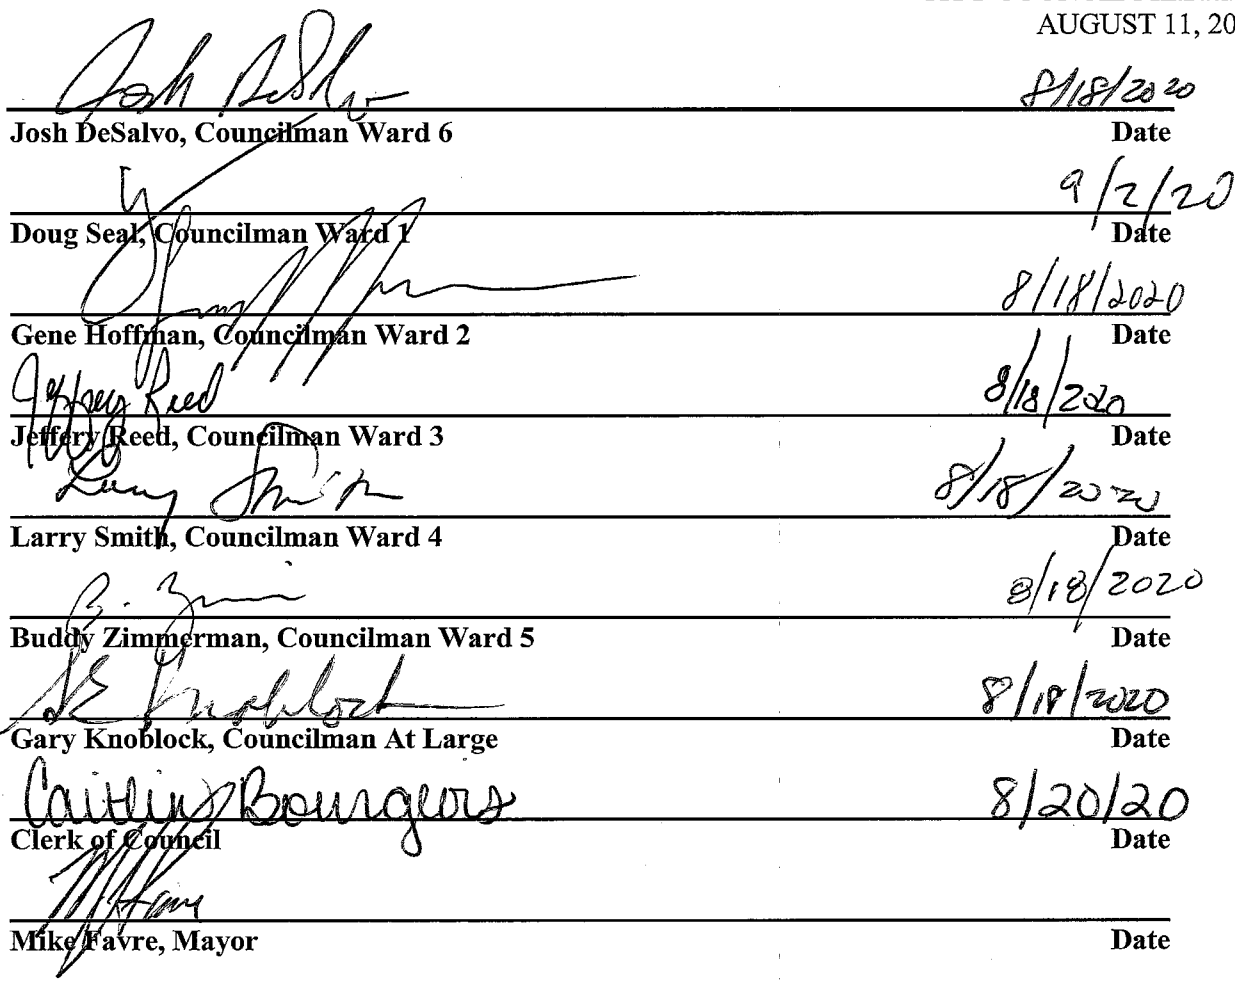 AUGUST 11, 20
Josh DeSalvo 8/18/2020
Josh DeSalvo, Councilman Ward 6 Date
9/2/20
Doug Seal, Councilman Ward 1 Date
8/18/2020
Gene Hoffman, Councilman Ward 2 Date
Jeffrey Reed 8/18/2020
Jeffery Reed, Councilman Ward 3 Date
Larry Smith 8/18/2020
Larry Smith, Councilman Ward 4 Date
B. 8/18/2020
Buddy Zimmerman, Councilman Ward 5 Date
Knoblock 8/18/2020
Gary Knoblock, Councilman At Large Date
Caitlin Bourgeois 8/20/20
Clerk of Council Date
Mike Favre, Mayor Date